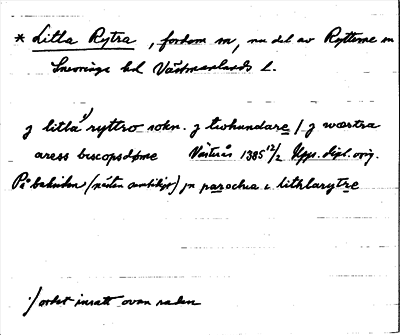 * Litla Rytra, fordom sn, nu del av Rytterne sn
Snevringe hd Västmanlands l.
j litla 1) ryttro sokn. j tiwhundare / j wæstra
aress biscopsdøme Västerås 1385 12/2 Upps. dipl. orig.
På baksidan (nästan samtidigt) jn parochia i litklarytre
1) ordet insatt ovan raden